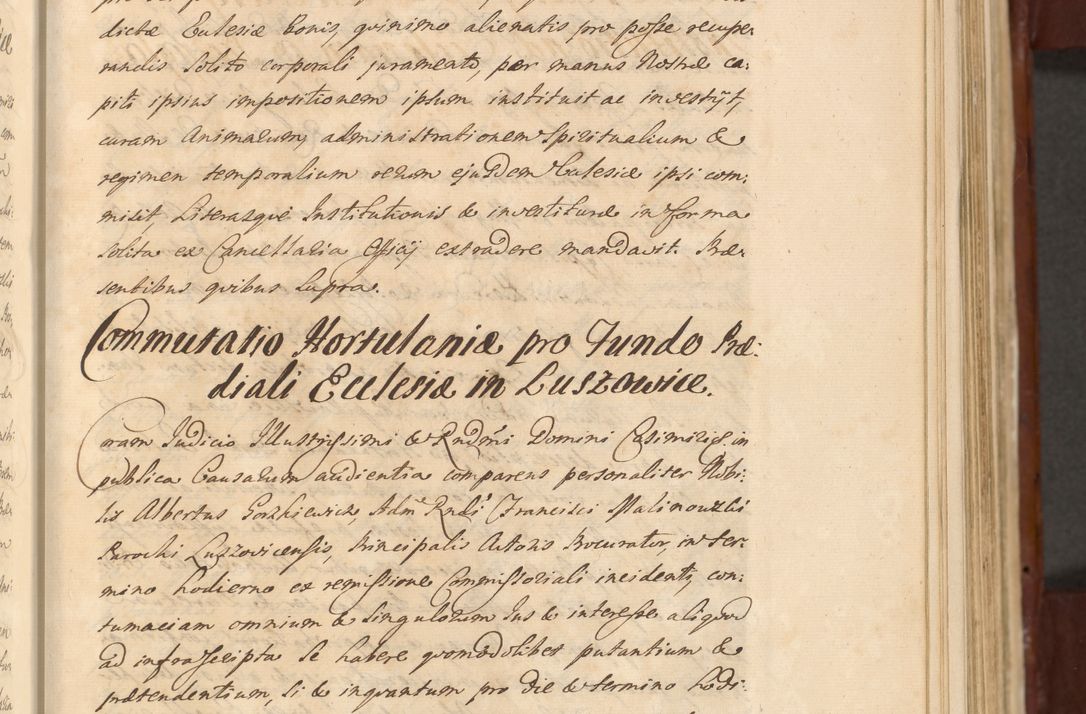 dictæ Ecclesiæ bonis, quinimo alienatis pro posse recupe
randis solito corporali juramento, per manus Nostræ ca:
piti ipsius impositionem ipsum instituit ac investijt,
curam Animarum, administrationem Spiritualium &
regimen temporalium rerum ejusdem Ecclesiæ ipsi com:
misit, Literasque Institutionis & investituræ in forma
solita ex Cancellaria Officij extradere mandavit. Præ:
sentibus quibus supra.
Commutatio Hortulaniæ pro Fundo Præ:
diali Ecclesiæ in Luszowice.
Coram Judicio Illustrissimi & Rndmi Domini in
publica Causarum audientia comparens personaliter Nobi:
lis Albertus Gorzkiewicz, Adm Rndi Francisci Malinowski
Parochi Luszovicensis, Principalis Actoris Procurator, in ter:
mino hodierno ex remissione Commissoriali incidenti, con:
tumaciam omnium & singulorum Jus & interesse aliquod
ad infrascripta se habere quomodolibet putantium &
prætendentium, si & inquantum pro die & termino hodi: